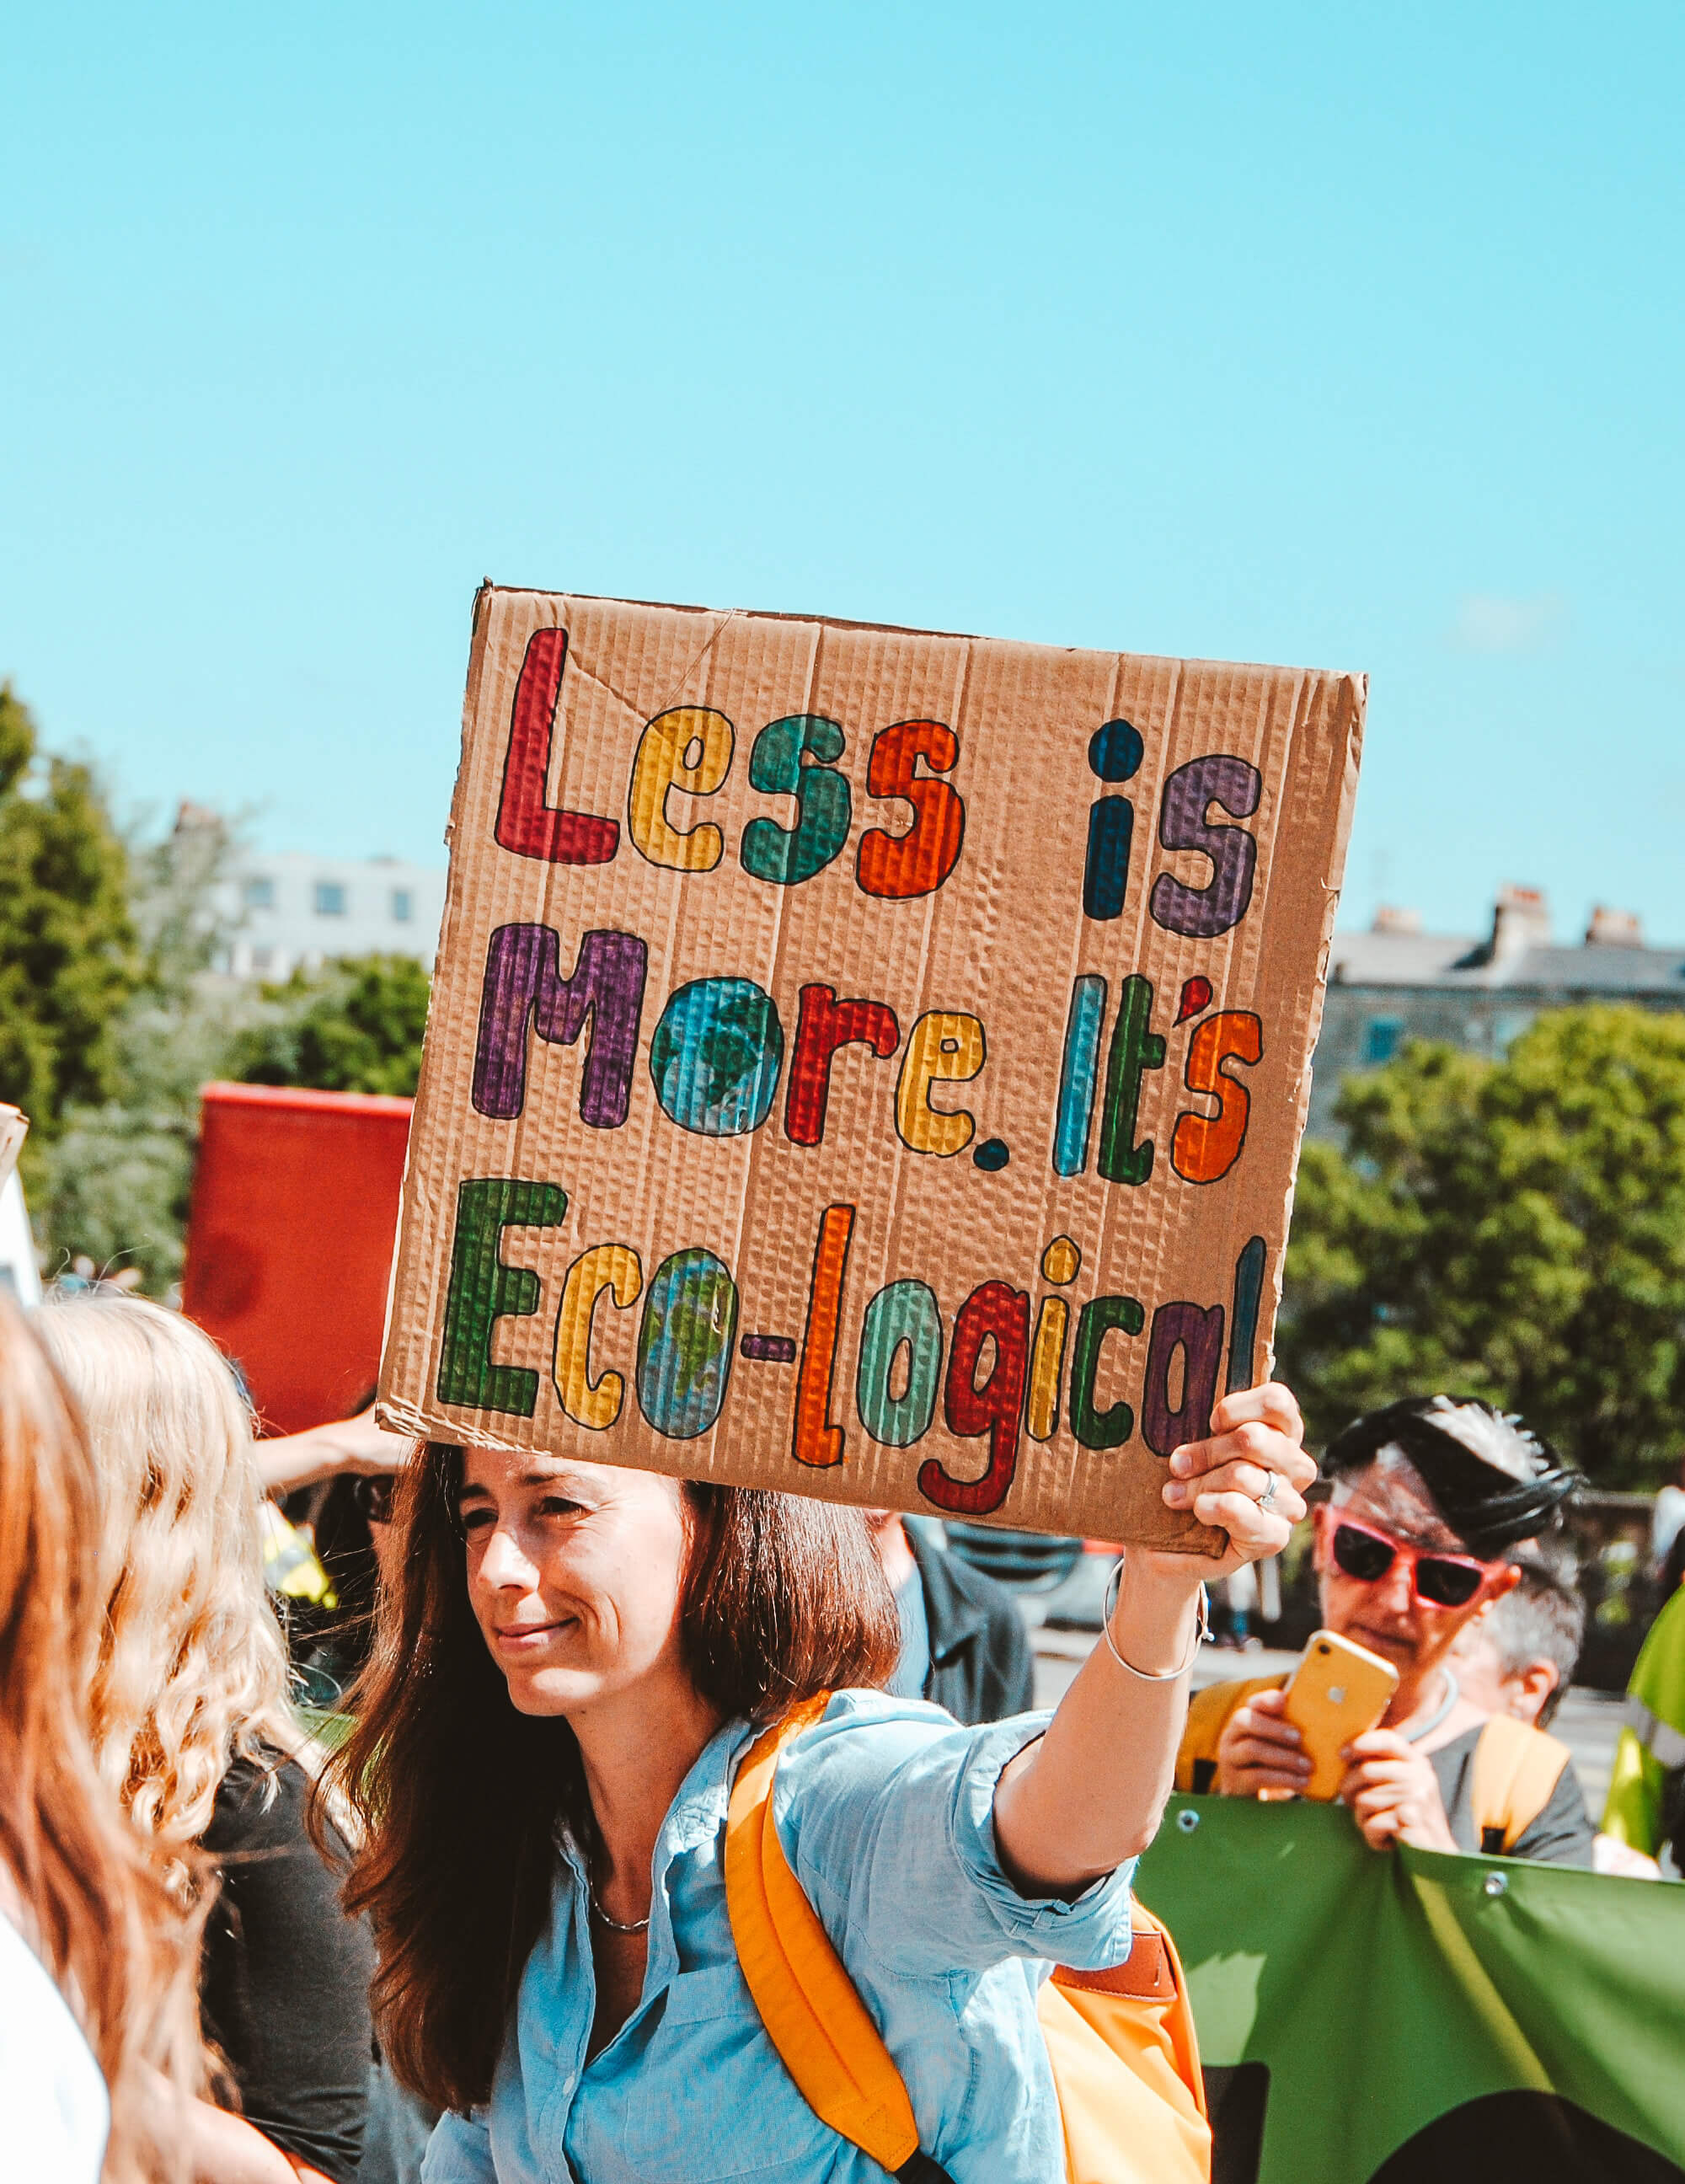 Less is
More. It's
Eco-logical